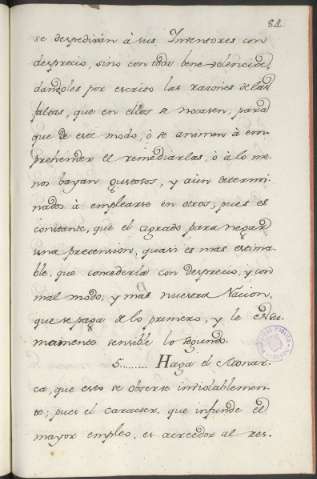 82.
se despedirán à sus Intensores con
desprecio, sino con toda benevolencia,
dandoles por escrito las razones de las
faltas, que en ellos se notasen, para
que de este modo, ò se animen à em-
prehender el remediarlas, ò à lo me-
nos bayan gustosos, y aùn determi-
nados à emplearse en otros; pues es
constante, que el agrado para negar
una pretension, quasi es mas estima-
ble, que concederla con desprecio, y con
mal modo; y mas nuestra Nacion,
que se paga de lo primero, y le es su-
mamente sensible lo segundo.
5......... Haga el Monar-
ca, que esto se observe inviolablemen-
te; pues el caracter, que infunde el
mayor empleo, es acreedor al res-